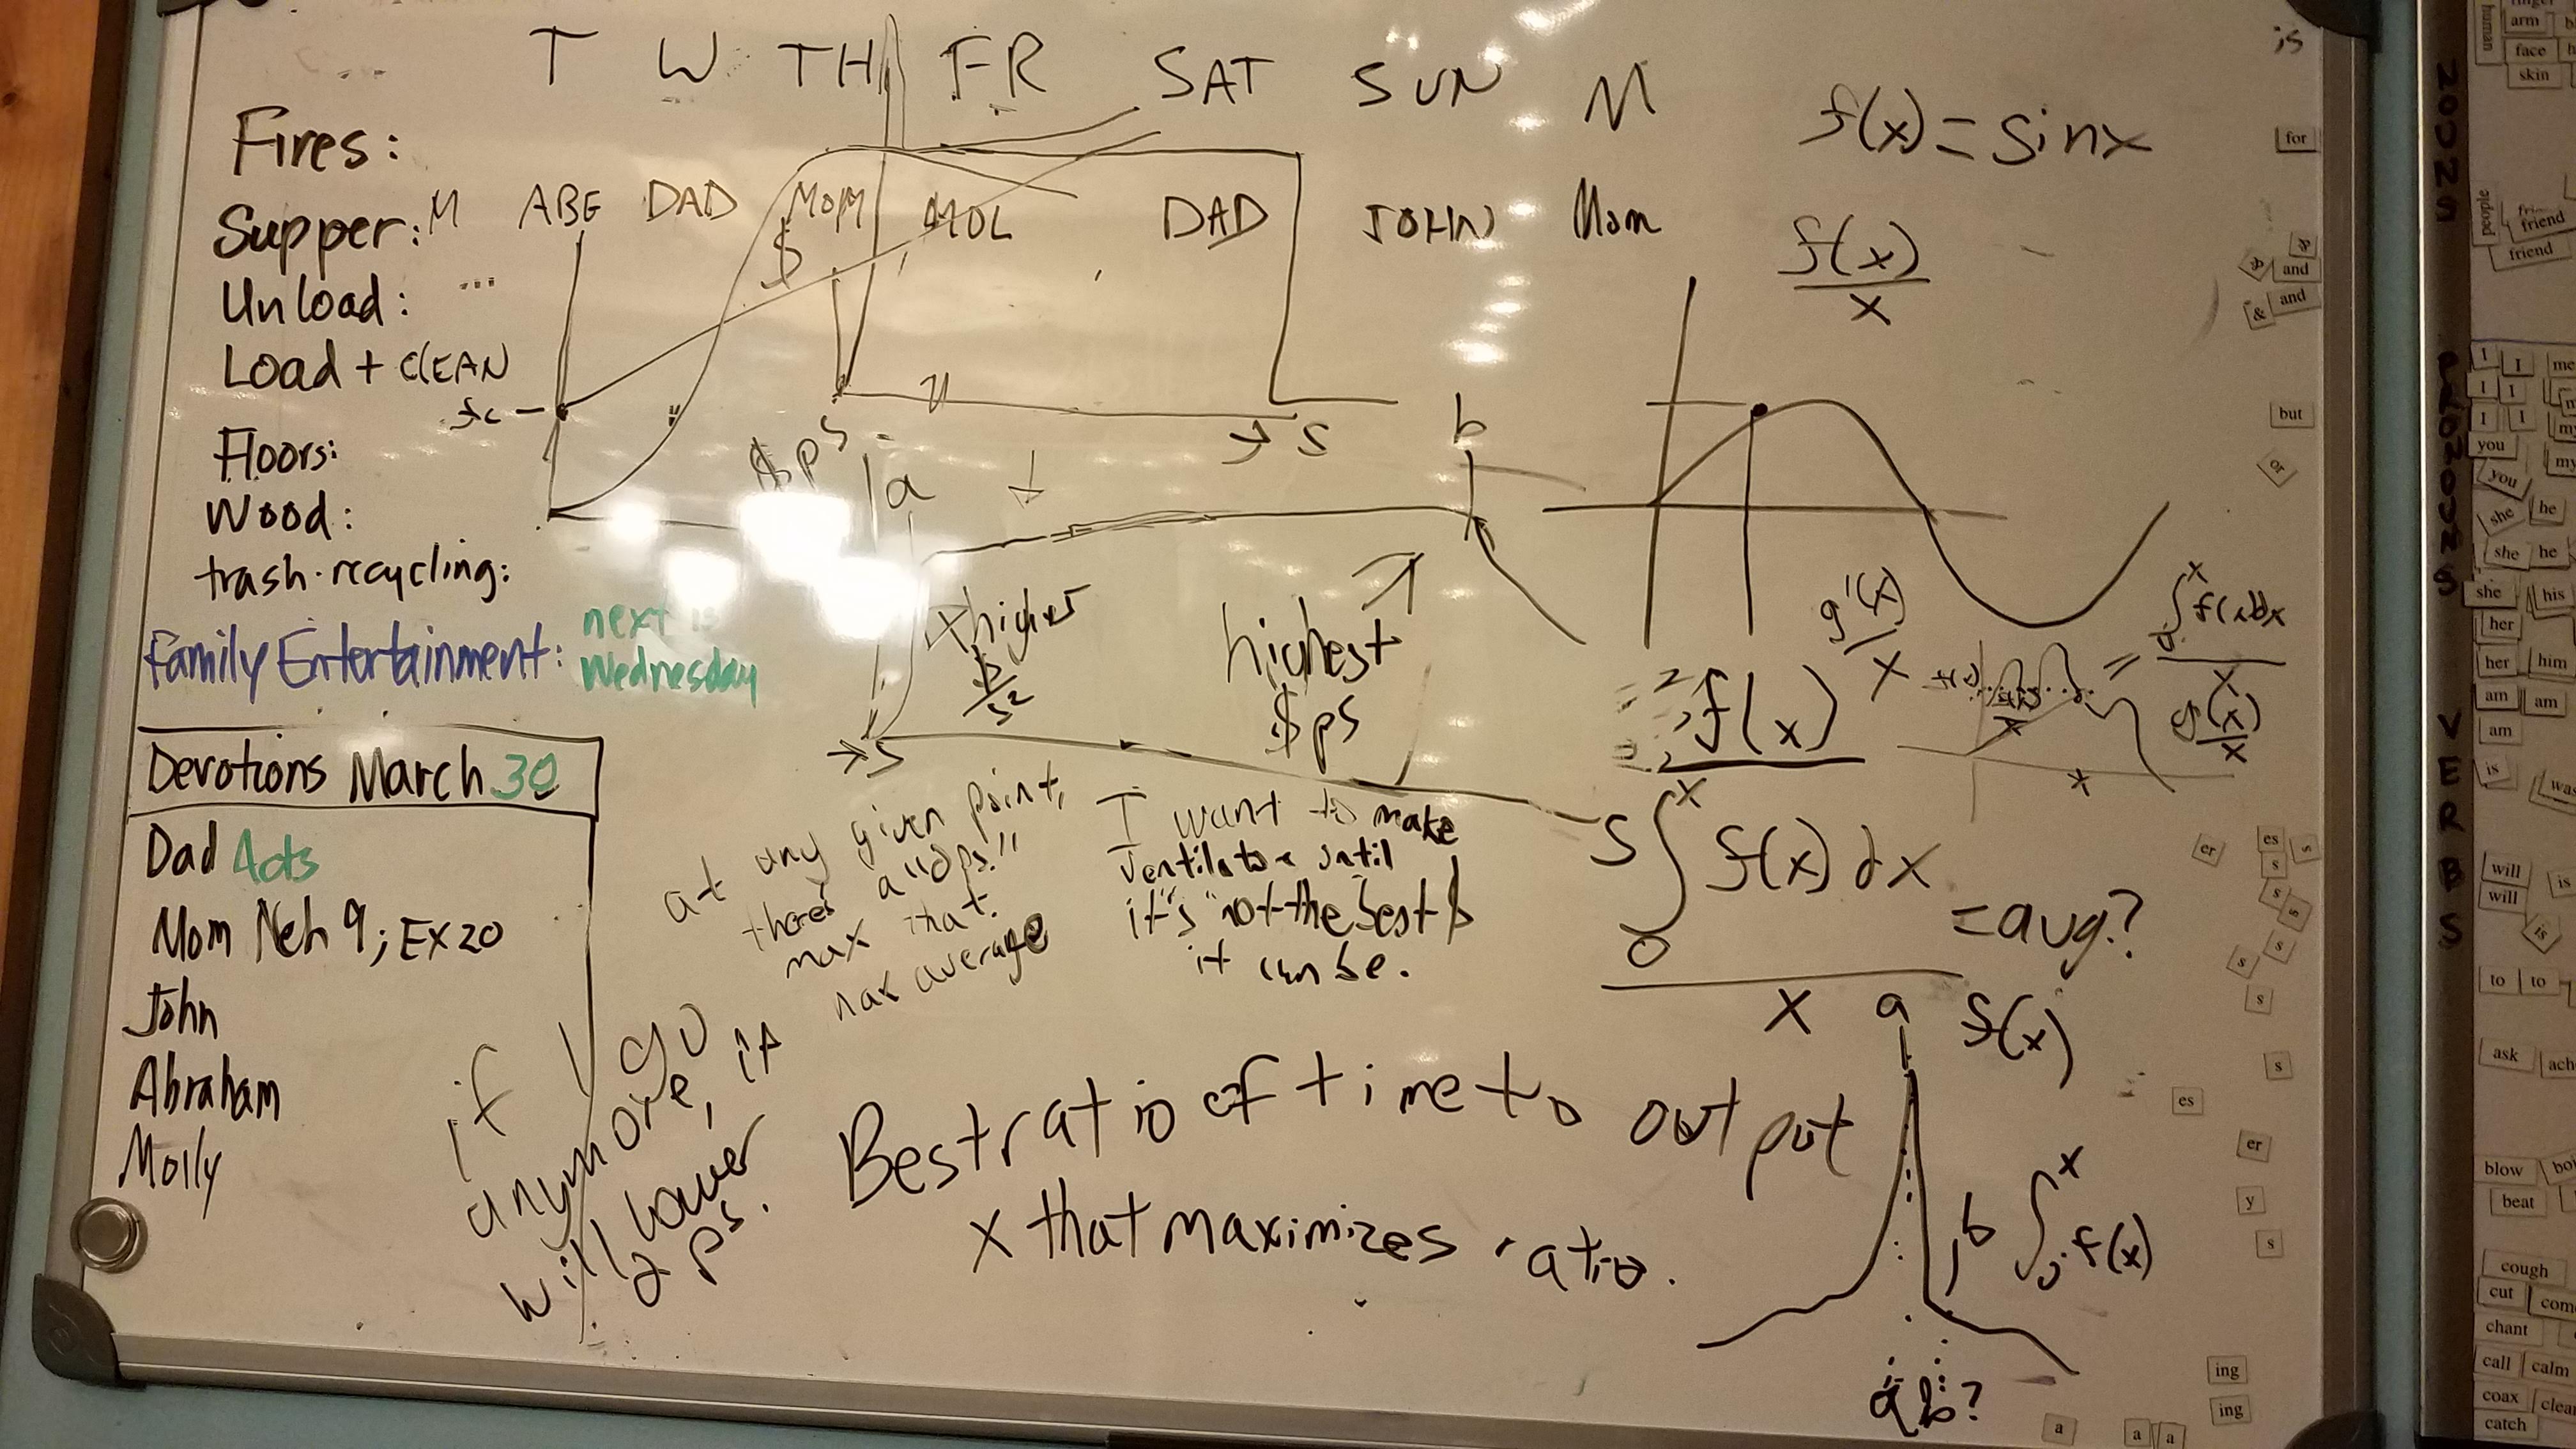 T W TH FR SAT SUN M
Fires:
Supper: M ABE DAD MOM MOL DAD JOHN Mom
Unload:
Load + CLEAN
Floors:
Wood:
trash · recycling:
Family Entertainment: next is
Wednesday
Devotions March 30
Dad Acts
Mom Neh 9; EX 20
John
Abraham
Molly
$
fc
→ S
$ps
a
b
higher
$/s²
highest
$ps
→ S
S
at any given point,
there's a "dps."
max that.
max average
I want to make
ventilators until
it's "not the best
it can be.
if I go
anymore, it
will lower
ps.
Best ratio of time to output
x that maximizes ratio.
f(x) = sinx
f(x)
x
g'(x)
x
f(x)
∫₀ˣ f(x)dx
x
g(x)
x
∫₀ˣ f(x) dx
x
= avg.?
a f(x)
b ∫₀ˣ f(x)
a b?
is
for
&
and
&
and
but
or
er
es
s
s
s
s
is
s
s
s
s
es
er
y
s
ing
ing
a
a
a
NOUNS
human
arm
face
skin
people
friend
friend
PRONOUNS
I
I
me
I
I
I
I
my
you
my
you
she
he
she
he
she
his
her
her
him
VERBS
am
am
am
is
was
will
is
will
to
to
ask
blow
beat
cough
cut
chant
call
calm
coax
catch